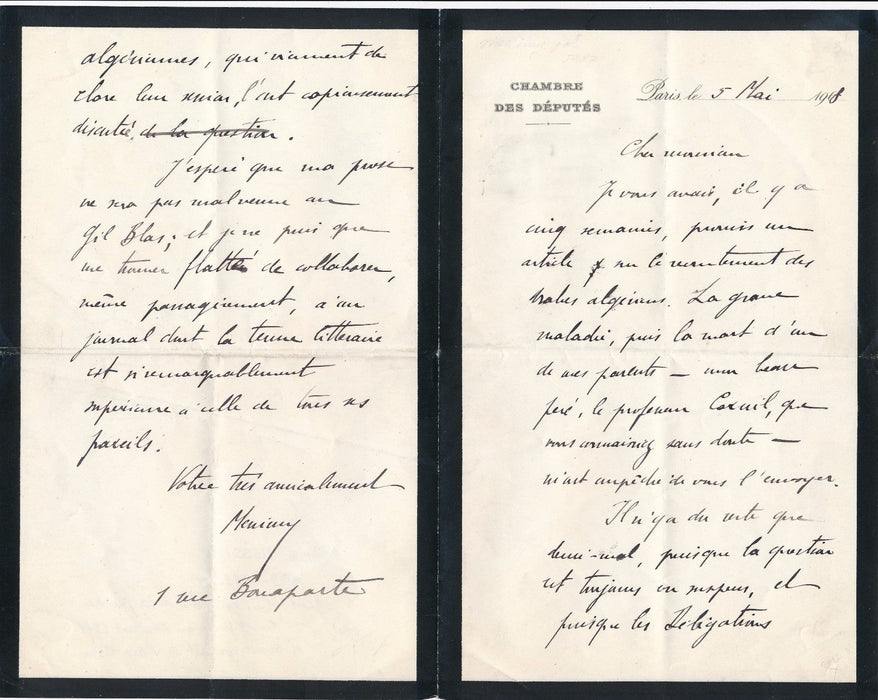 CHAMBRE
DES DÉPUTÉS
Paris, le 5 Mai 1908
Cher monsieur
Je vous avais, il y a
cinq semaines, promis un
article sur le recrutement des
Arabes algériens. La grave
maladie, puis la mort d'un
de mes parents — mon beau
père, le professeur Cornil, que
vous connaissiez sans doute —
m'ont empêché de vous l'envoyer.
Il n'y a du reste que
demi-mal, puisque la question
est toujours en suspens, et
puisque les Délégations
algériennes, qui viennent de
clore leur session, l'ont copieusement
discutée. de la question.
J'espère que ma prose
ne sera pas malvenue au
Gil Blas; et je ne puis que
me trouver flatté de collaborer,
même passagèrement, à un
journal dont la tenue littéraire
est si remarquablement
supérieure à celle de tous ses
pareils.
Votre très amicalement
1 rue Bonaparte